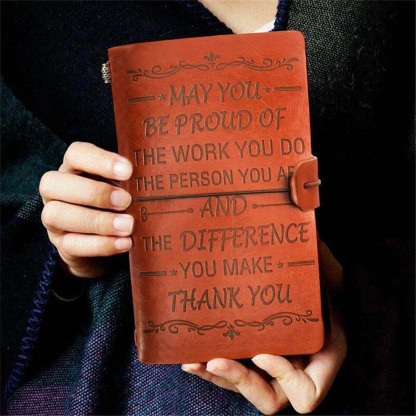 MAY YOU
BE PROUD OF
THE WORK YOU DO
THE PERSON YOU
AND
THE DIFFERENCE
YOU MAKE
THANK YOU